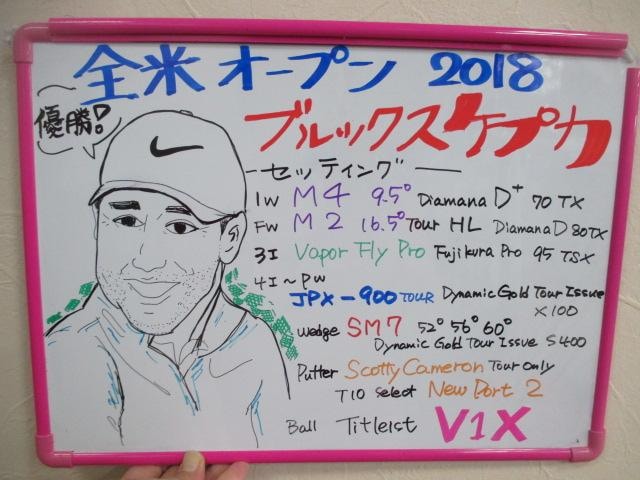 全米オープン 2018
優勝!
ブルックスケプカ
ーセッティングー
1W M4 9.5° Diamana D+ 70 TX
FW M2 16.5° Tour HL Diamana D 80TX
3I Vapor Fly Pro Fujikura Pro 95 TSX
4I～PW
JPX-900 TOUR Dynamic Gold Tour Issue
X100
wedge SM7 52° 56° 60°
Dynamic Gold Tour Issue S400
Putter Scotty Cameron Tour only
T10 select New Port 2
Ball Titleist V1X